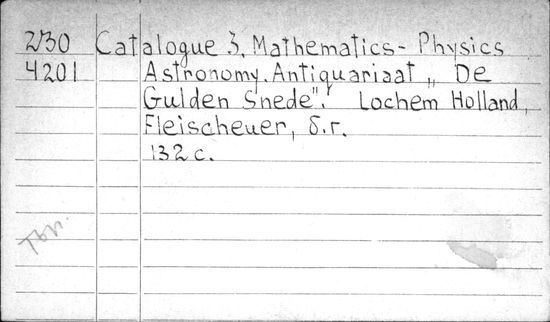 2/30 Catalogue 3, Mathematics - Physics
4201 Astronomy. Antiquariaat „ De
Gulden Snede". Lochem Holland,
Fleischeuer, б.г.
132 с.